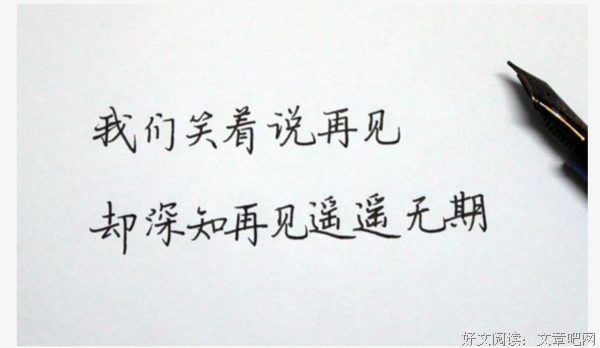 我们笑着说再见
却深知再见遥遥无期
好文阅读：文章吧网